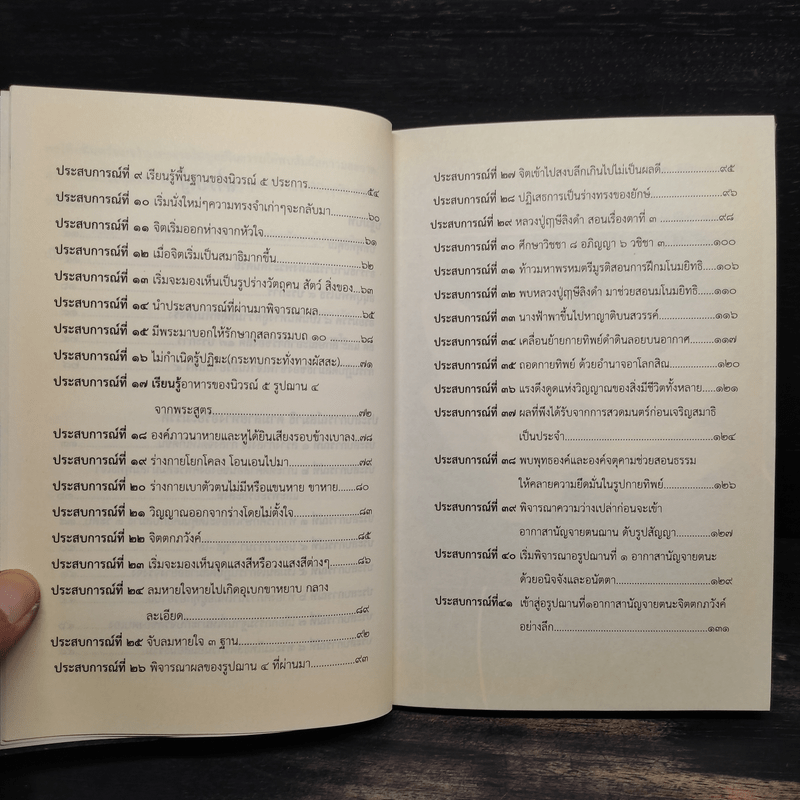 ประสบการณ์ที่ ๙ เรียนรู้พื้นฐานของนิวรณ์ ๕ ประการ....................๕๔
ประสบการณ์ที่ ๑๐ เริ่มนั่งใหม่ๆความทรงจำเก่าๆจะกลับมา...........๖๐
ประสบการณ์ที่ ๑๑ จิตเริ่มออกห่างจากหัวใจ................................๖๑
ประสบการณ์ที่ ๑๒ เมื่อจิตเริ่มเป็นสมาธิมากขึ้น...........................๖๒
ประสบการณ์ที่ ๑๓ เริ่มจะมองเห็นเป็นรูปร่างวัตถุคน สัตว์ สิ่งของ...๖๓
ประสบการณ์ที่ ๑๔ นำประสบการณ์ที่ผ่านมาพิจารณาผล................๖๕
ประสบการณ์ที่ ๑๕ มีพระมาบอกให้รักษากุสลกรรมบถ ๑๐ ..........๖๘
ประสบการณ์ที่ ๑๖ ไม่กำเนิดรู้ปฏิฆะ(กระทบกระทั่งทางผัสสะ)......๗๑
ประสบการณ์ที่ ๑๗ เรียนรู้อาหารของนิวรณ์ ๕ รูปฌาน ๔
จากพระสูตร..............................................๗๒
ประสบการณ์ที่ ๑๘ องค์ภาวนาหายและหูได้ยินเสียงรอบข้างเบาลง..๗๘
ประสบการณ์ที่ ๑๙ ร่างกายโยกโคลง โอนเอนไปมา......................๗๙
ประสบการณ์ที่ ๒๐ ร่างกายเบาตัวตนไม่มีหรือแขนหาย ขาหาย......๘๐
ประสบการณ์ที่ ๒๑ วิญญาณออกจากร่างโดยไม่ตั้งใจ....................๘๓
ประสบการณ์ที่ ๒๒ จิตตกภวังค์................................................๘๕
ประสบการณ์ที่ ๒๓ เริ่มจะมองเห็นจุดแสงสีหรือวงแสงสีต่างๆ........๘๖
ประสบการณ์ที่ ๒๔ ลมหายใจหายไปเกิดอุเบกขาหยาบ กลาง
ละเอียด....................................................๘๙
ประสบการณ์ที่ ๒๕ จับลมหายใจ ๓ ฐาน....................................๙๒
ประสบการณ์ที่ ๒๖ พิจารณาผลของรูปฌาน ๔ ที่ผ่านมา...............๙๓
ประสบการณ์ที่ ๒๗ จิตเข้าไปสงบลึกเกินไปไม่เป็นผลดี.................๙๕
ประสบการณ์ที่ ๒๘ ปฏิเสธการเป็นร่างทรงของยักษ์......................๙๖
ประสบการณ์ที่ ๒๙ หลวงปู่ฤๅษีลิงดำ สอนเรื่องตาที่ ๓ ................๙๘
ประสบการณ์ที่ ๓๐ ศึกษาวิชชา ๘ อภิญญา ๖ วชิชา ๓...............๑๐๐
ประสบการณ์ที่ ๓๑ ท้าวมหาพรหมตรีมูรติสอนการฝึกมโนมยิทธิ...๑๐๖
ประสบการณ์ที่ ๓๒ พบหลวงปู่ฤๅษีลิงดำ มาช่วยสอนมโนมยิทธิ.....๑๑๐
ประสบการณ์ที่ ๓๓ นางฟ้าพาขึ้นไปหาญาติบนสวรรค์.................๑๑๖
ประสบการณ์ที่ ๓๔ เคลื่อนย้ายกายทิพย์ดำดินลอยบนอากาศ.......๑๑๗
ประสบการณ์ที่ ๓๕ ถอดกายทิพย์ ด้วยอำนาจอาโลกสิณ..............๑๒๐
ประสบการณ์ที่ ๓๖ แรงดึงดูดแห่งวิญญาณของสิ่งมีชีวิตทั้งหลาย....๑๒๑
ประสบการณ์ที่ ๓๗ ผลที่พึงได้รับจากการสวดมนตร์ก่อนเจริญสมาธิ
เป็นประจำ...............................................๑๒๔
ประสบการณ์ที่ ๓๘ พบพุทธองค์และองค์จตุคามช่วยสอนธรรม
ให้คลายความยึดมั่นในรูปกายทิพย์................๑๒๖
ประสบการณ์ที่ ๓๙ พิจารณาความว่างเปล่าก่อนจะเข้า
อากาสานัญจายตนฌาน ดับรูปสัญญา............๑๒๗
ประสบการณ์ที่ ๔๐ เริ่มพิจารณาอรูปฌานที่ ๑ อากาสานัญจายตนะ
ด้วยอนิจจังและอนัตตา...............................๑๒๙
ประสบการณ์ที่๔๑ เข้าสู่อรูปฌานที่๑อากาสานัญจายตนะจิตตกภวังค์
อย่างลึก...................................................๑๓๑